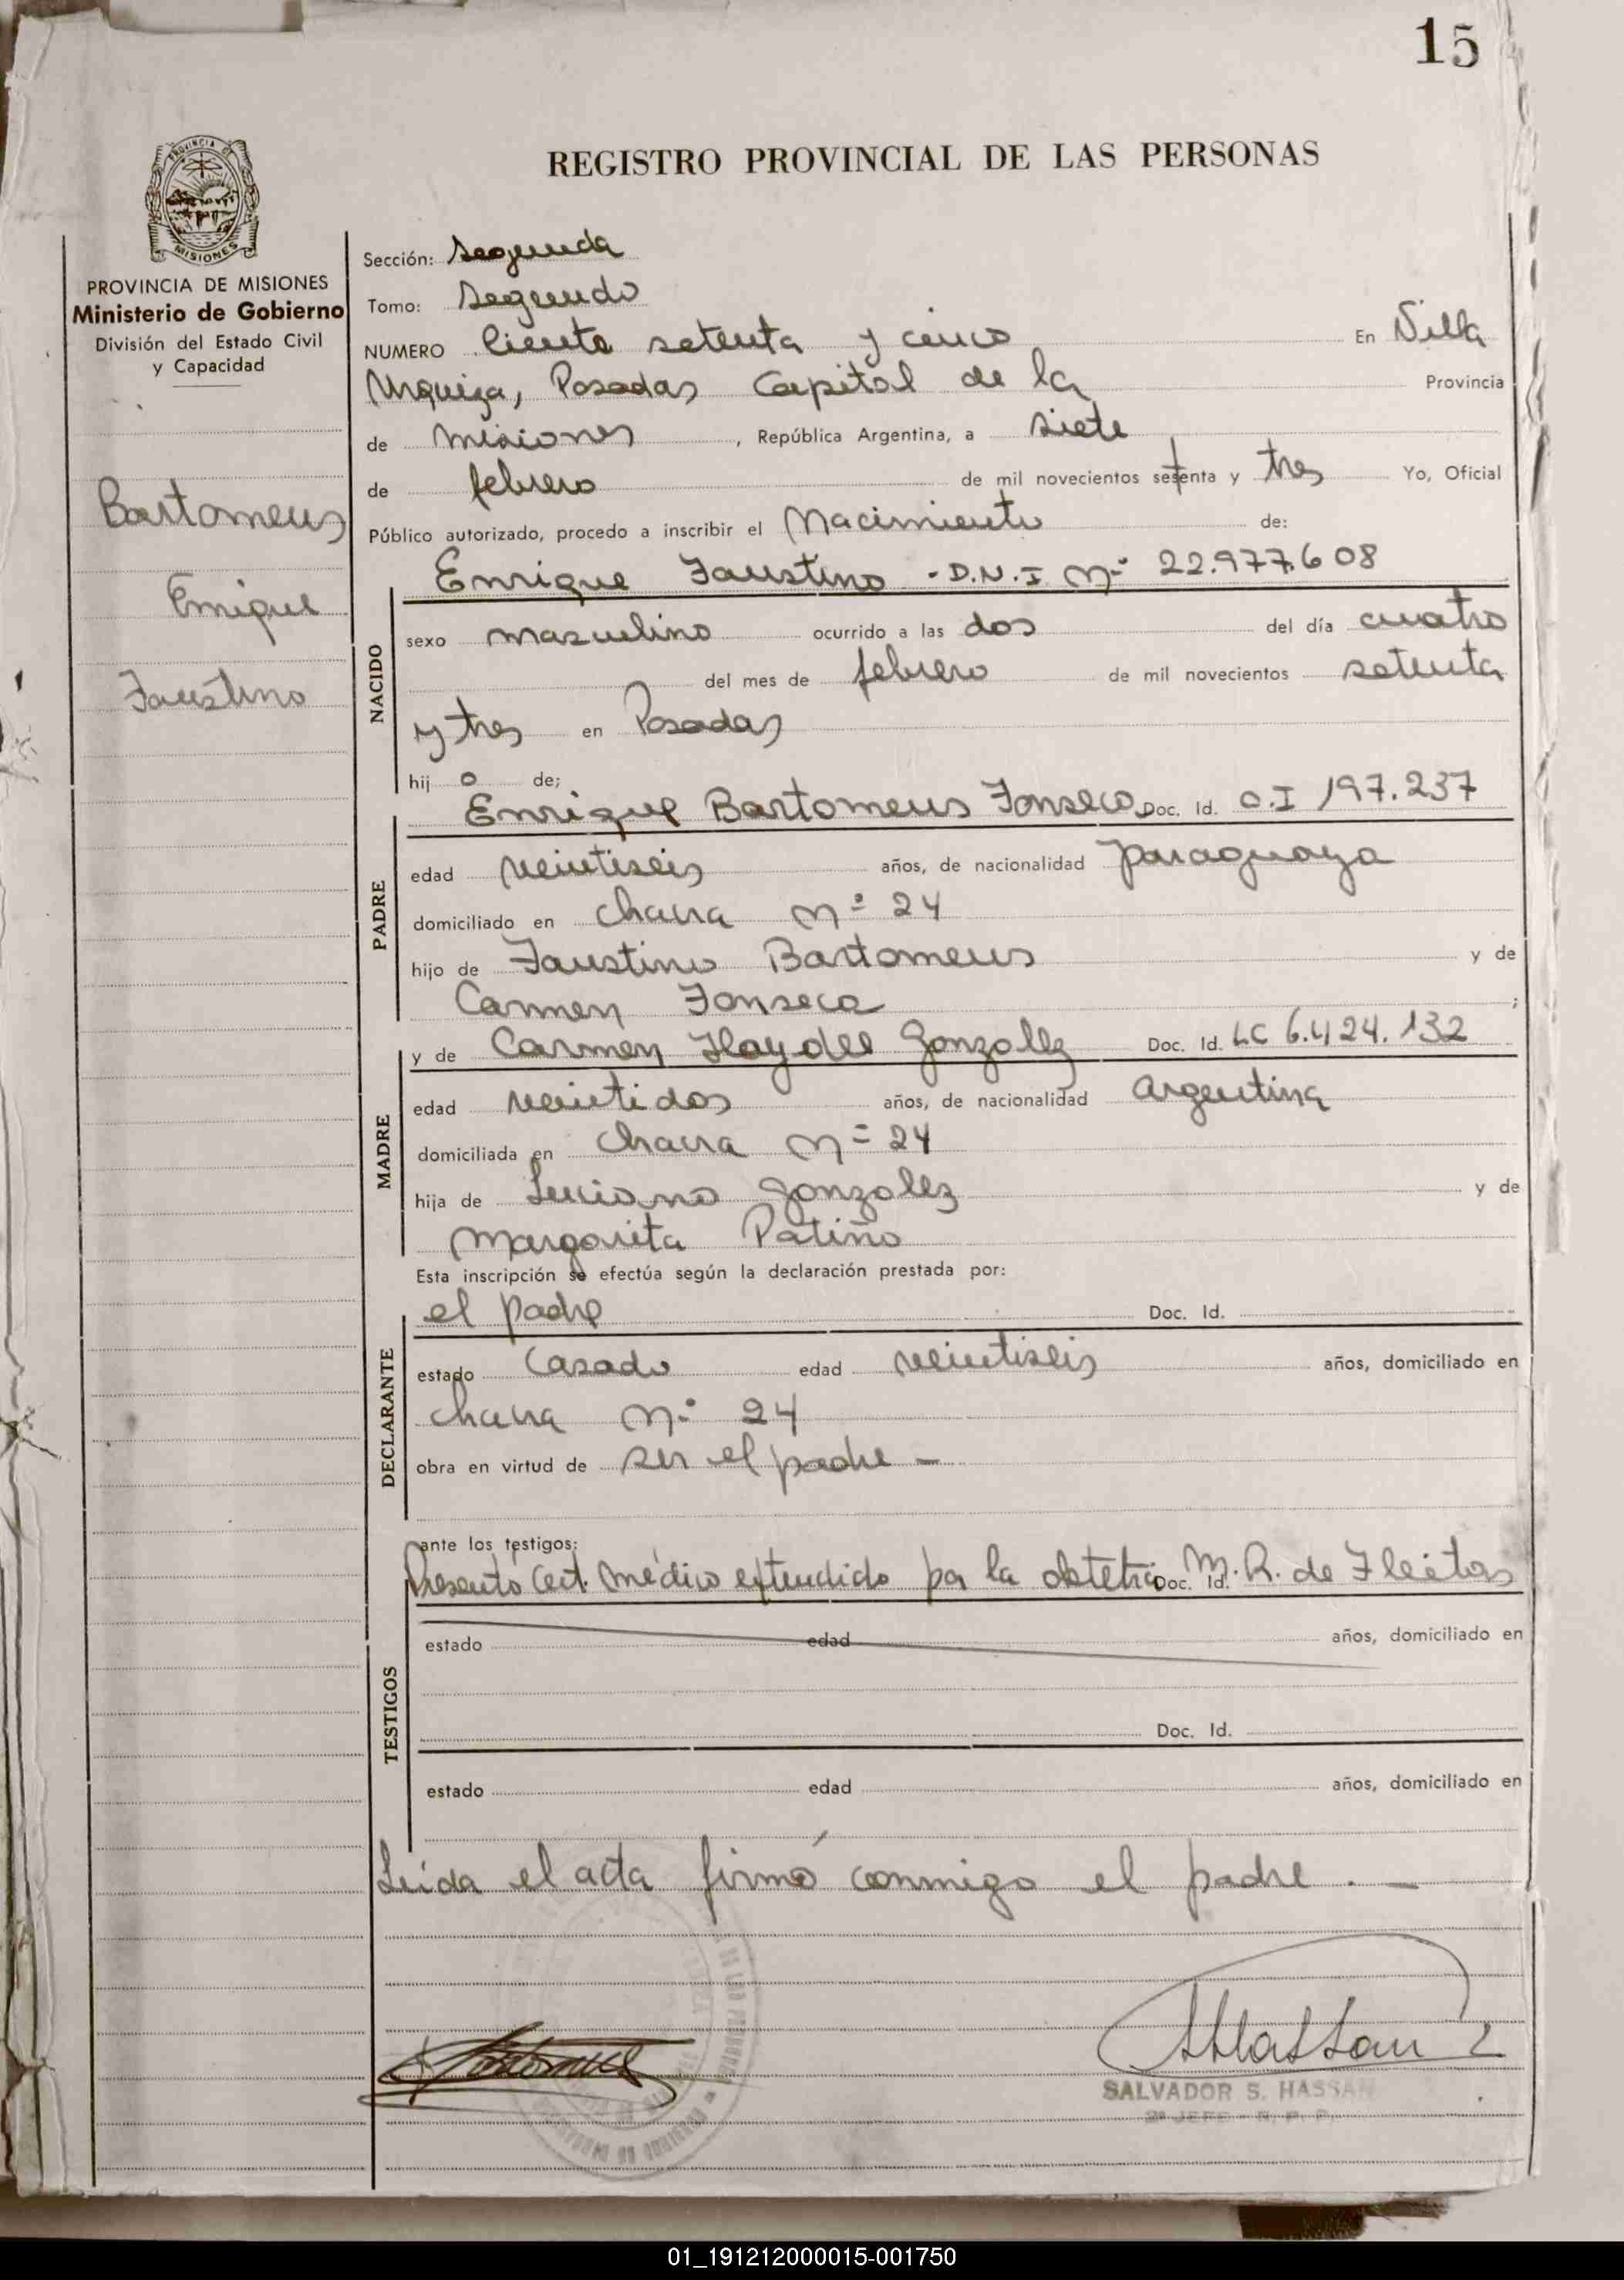 15
REGISTRO PROVINCIAL DE LAS PERSONAS
PROVINCIA DE
MISIONES
PROVINCIA DE MISIONES
Ministerio de Gobierno
División del Estado Civil
y Capacidad
Bartomeus
Enrique
Faustino
Sección: Segunda
Tomo: Segundo
NUMERO Ciento setenta y cinco En Villa
Urquiza, Posadas Capital de la Provincia
de Misiones, República Argentina, a siete
de febrero de mil novecientos setenta y tres Yo, Oficial
Público autorizado, procedo a inscribir el Nacimiento de:
Enrique Faustino - D.N.I Nº 22.977.608
NACIDO
sexo masculino ocurrido a las dos del día cuatro
del mes de febrero de mil novecientos setenta
y tres en Posadas
hijo de;
Enrique Bartomeus Fonseca Doc. Id. C.I 197.237
PADRE
edad veintiseis años, de nacionalidad paraguaya
domiciliado en chacra nº 24
hijo de Faustino Bartomeus y de
Carmen Fonseca ;
y de Carmen Haydee Gonzalez Doc. Id. LC 6.424.132
MADRE
edad veintidos años, de nacionalidad argentina
domiciliada en chacra nº 24
hija de Luciano Gonzalez y de
Margarita Patiño
Esta inscripción se efectúa según la declaración prestada por:
el padre Doc. Id.
DECLARANTE
estado casado edad veintiseis años, domiciliado en
chacra nº 24
obra en virtud de ser el padre -
ante los testigos:
Presentó Cert. médico extendido por la obstetra Doc. Id. M.R. de Fleitas
TESTIGOS
estado edad años, domiciliado en
Doc. Id.
estado edad años, domiciliado en
Leída el acta firmó conmigo el padre . -
SALVADOR S. HASSAN
2º JEFE - R. P. P.
01_191212000015-001750